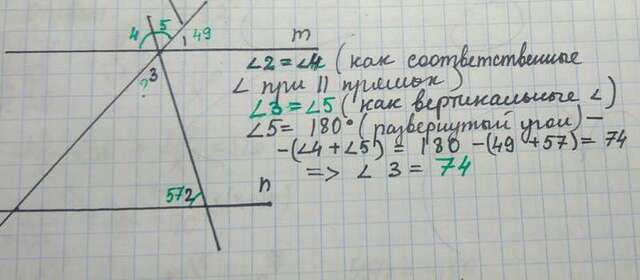 4 5 1 49 m
3
?
57 2 n
∠2=∠4 (как соответственные
∠ при || прямых)
∠3=∠5 (как вертикальные ∠)
∠5= 180° (развернутый угол) –
-(∠4+∠5) = 180 -(49 +57)= 74
=> ∠ 3 = 74